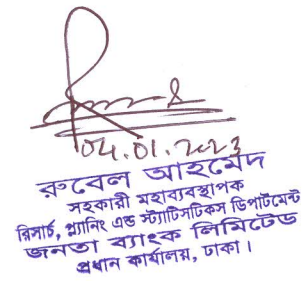 04.01.2023
রুবেল আহমেদ
সহকারী মহাব্যবস্থাপক
রিসার্চ, প্ল্যানিং এন্ড স্ট্যাটিসটিকস ডিপার্টমেন্ট
জনতা ব্যাংক লিমিটেড
প্রধান কার্যালয়, ঢাকা।